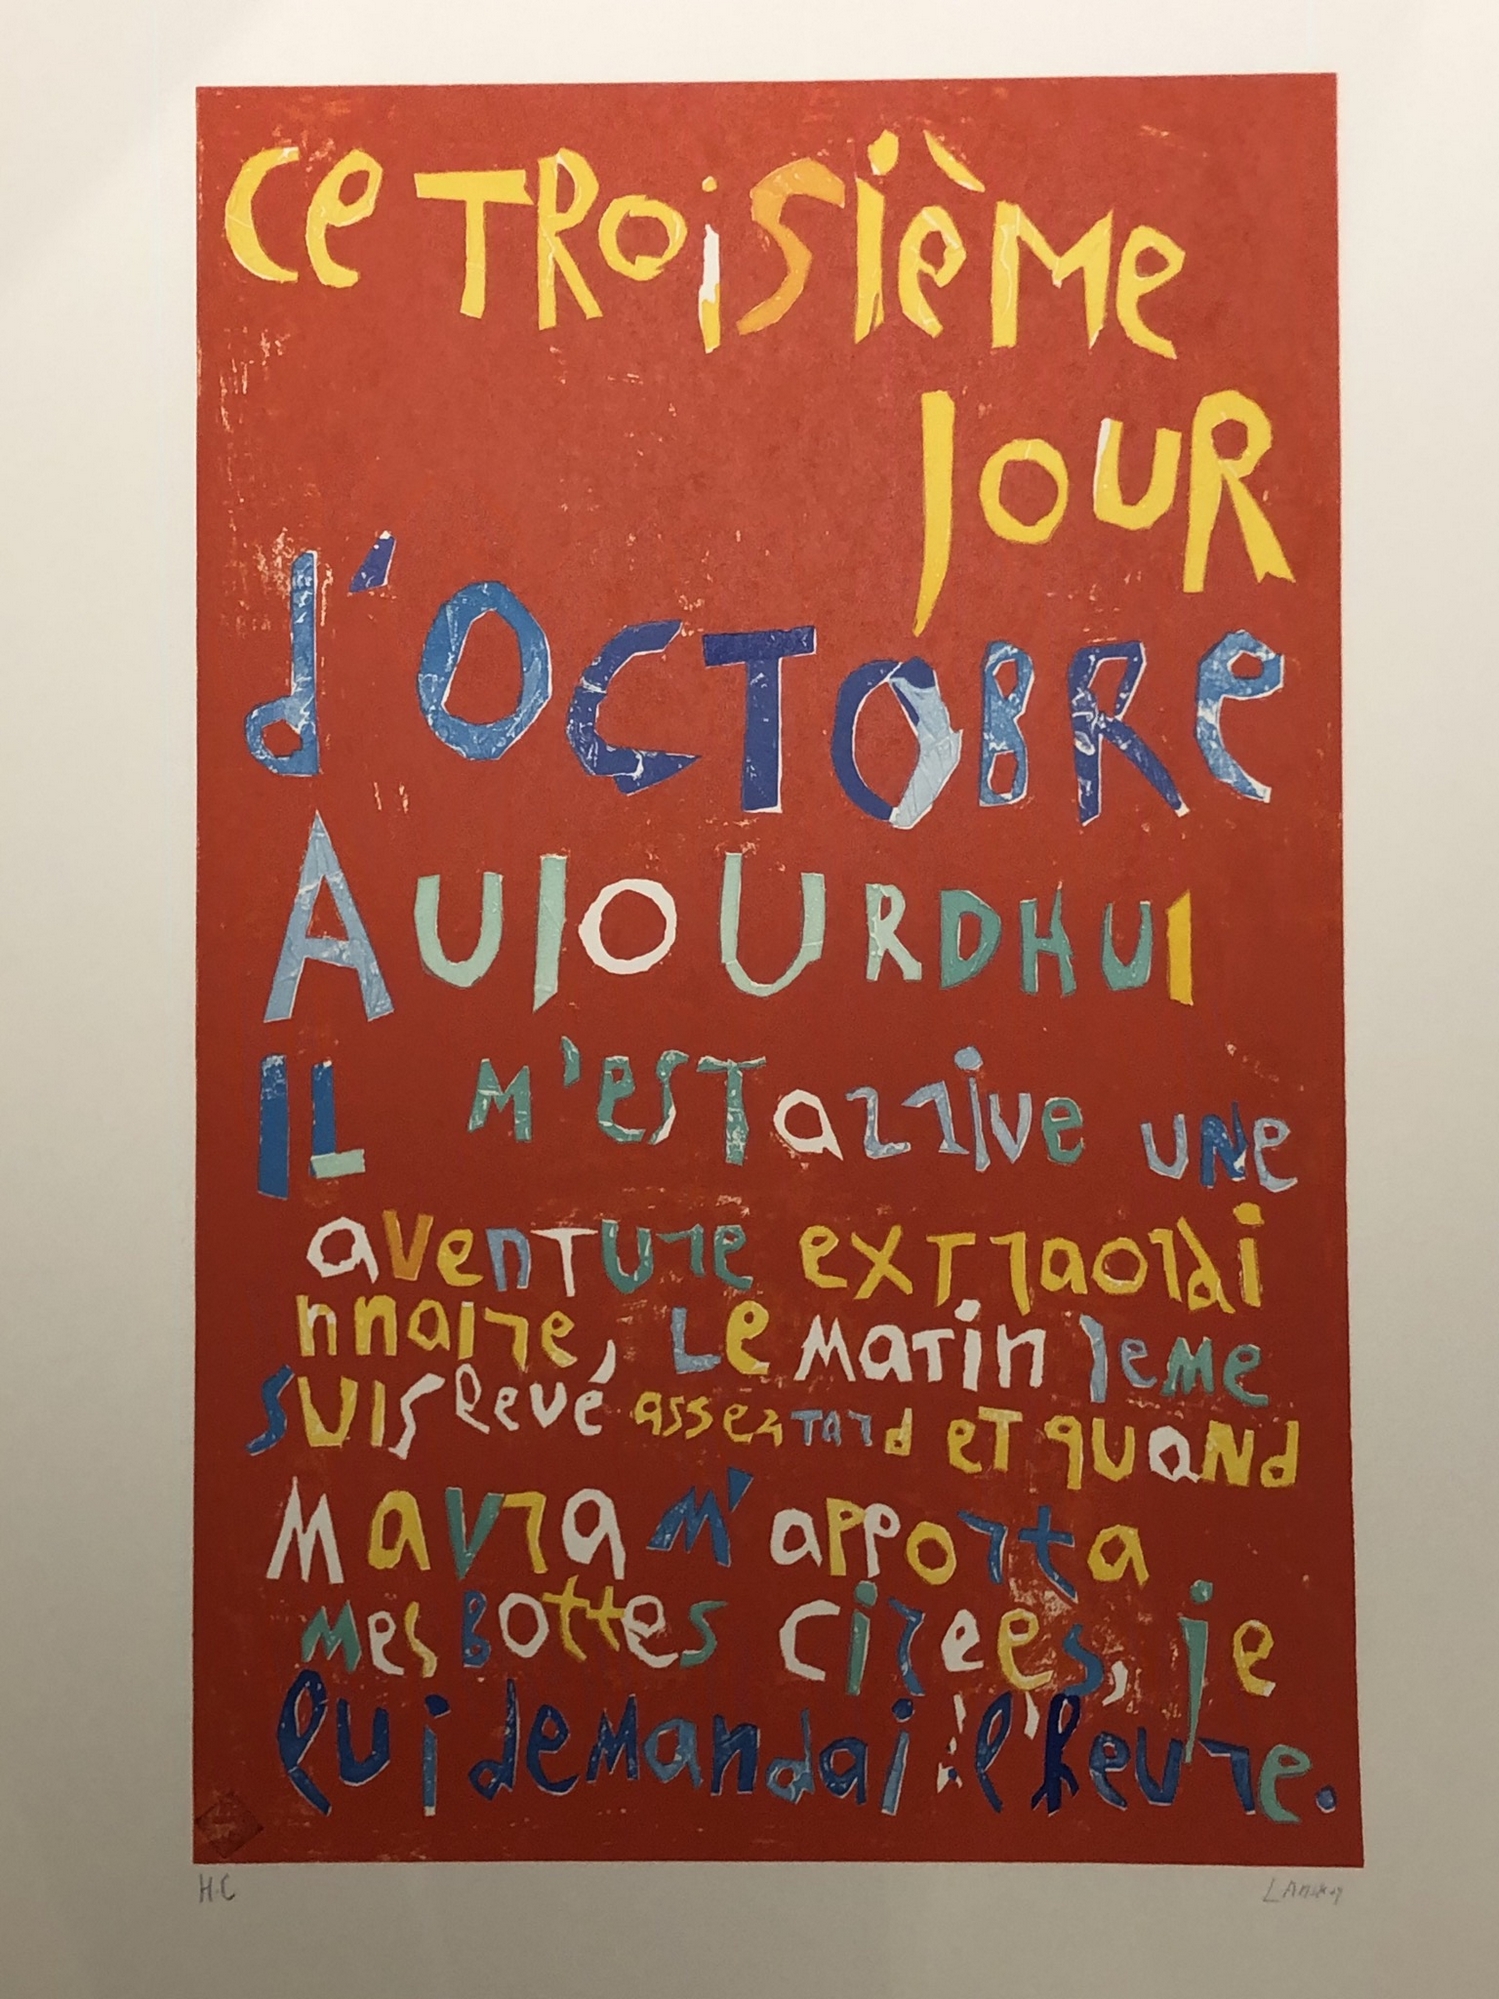 Ce TRoisième
JOUR
d'OCTOBRe
AUJOURDHUI
IL M'esT arrive UNe
aventure extraordi
nnaire, Le Matin Jeme
suis levé assez Tard eT quaNd
Mavra M'apporta
Mes Bottes cirees, je
lui deMandai l'heure.
H.C
LAnskoy